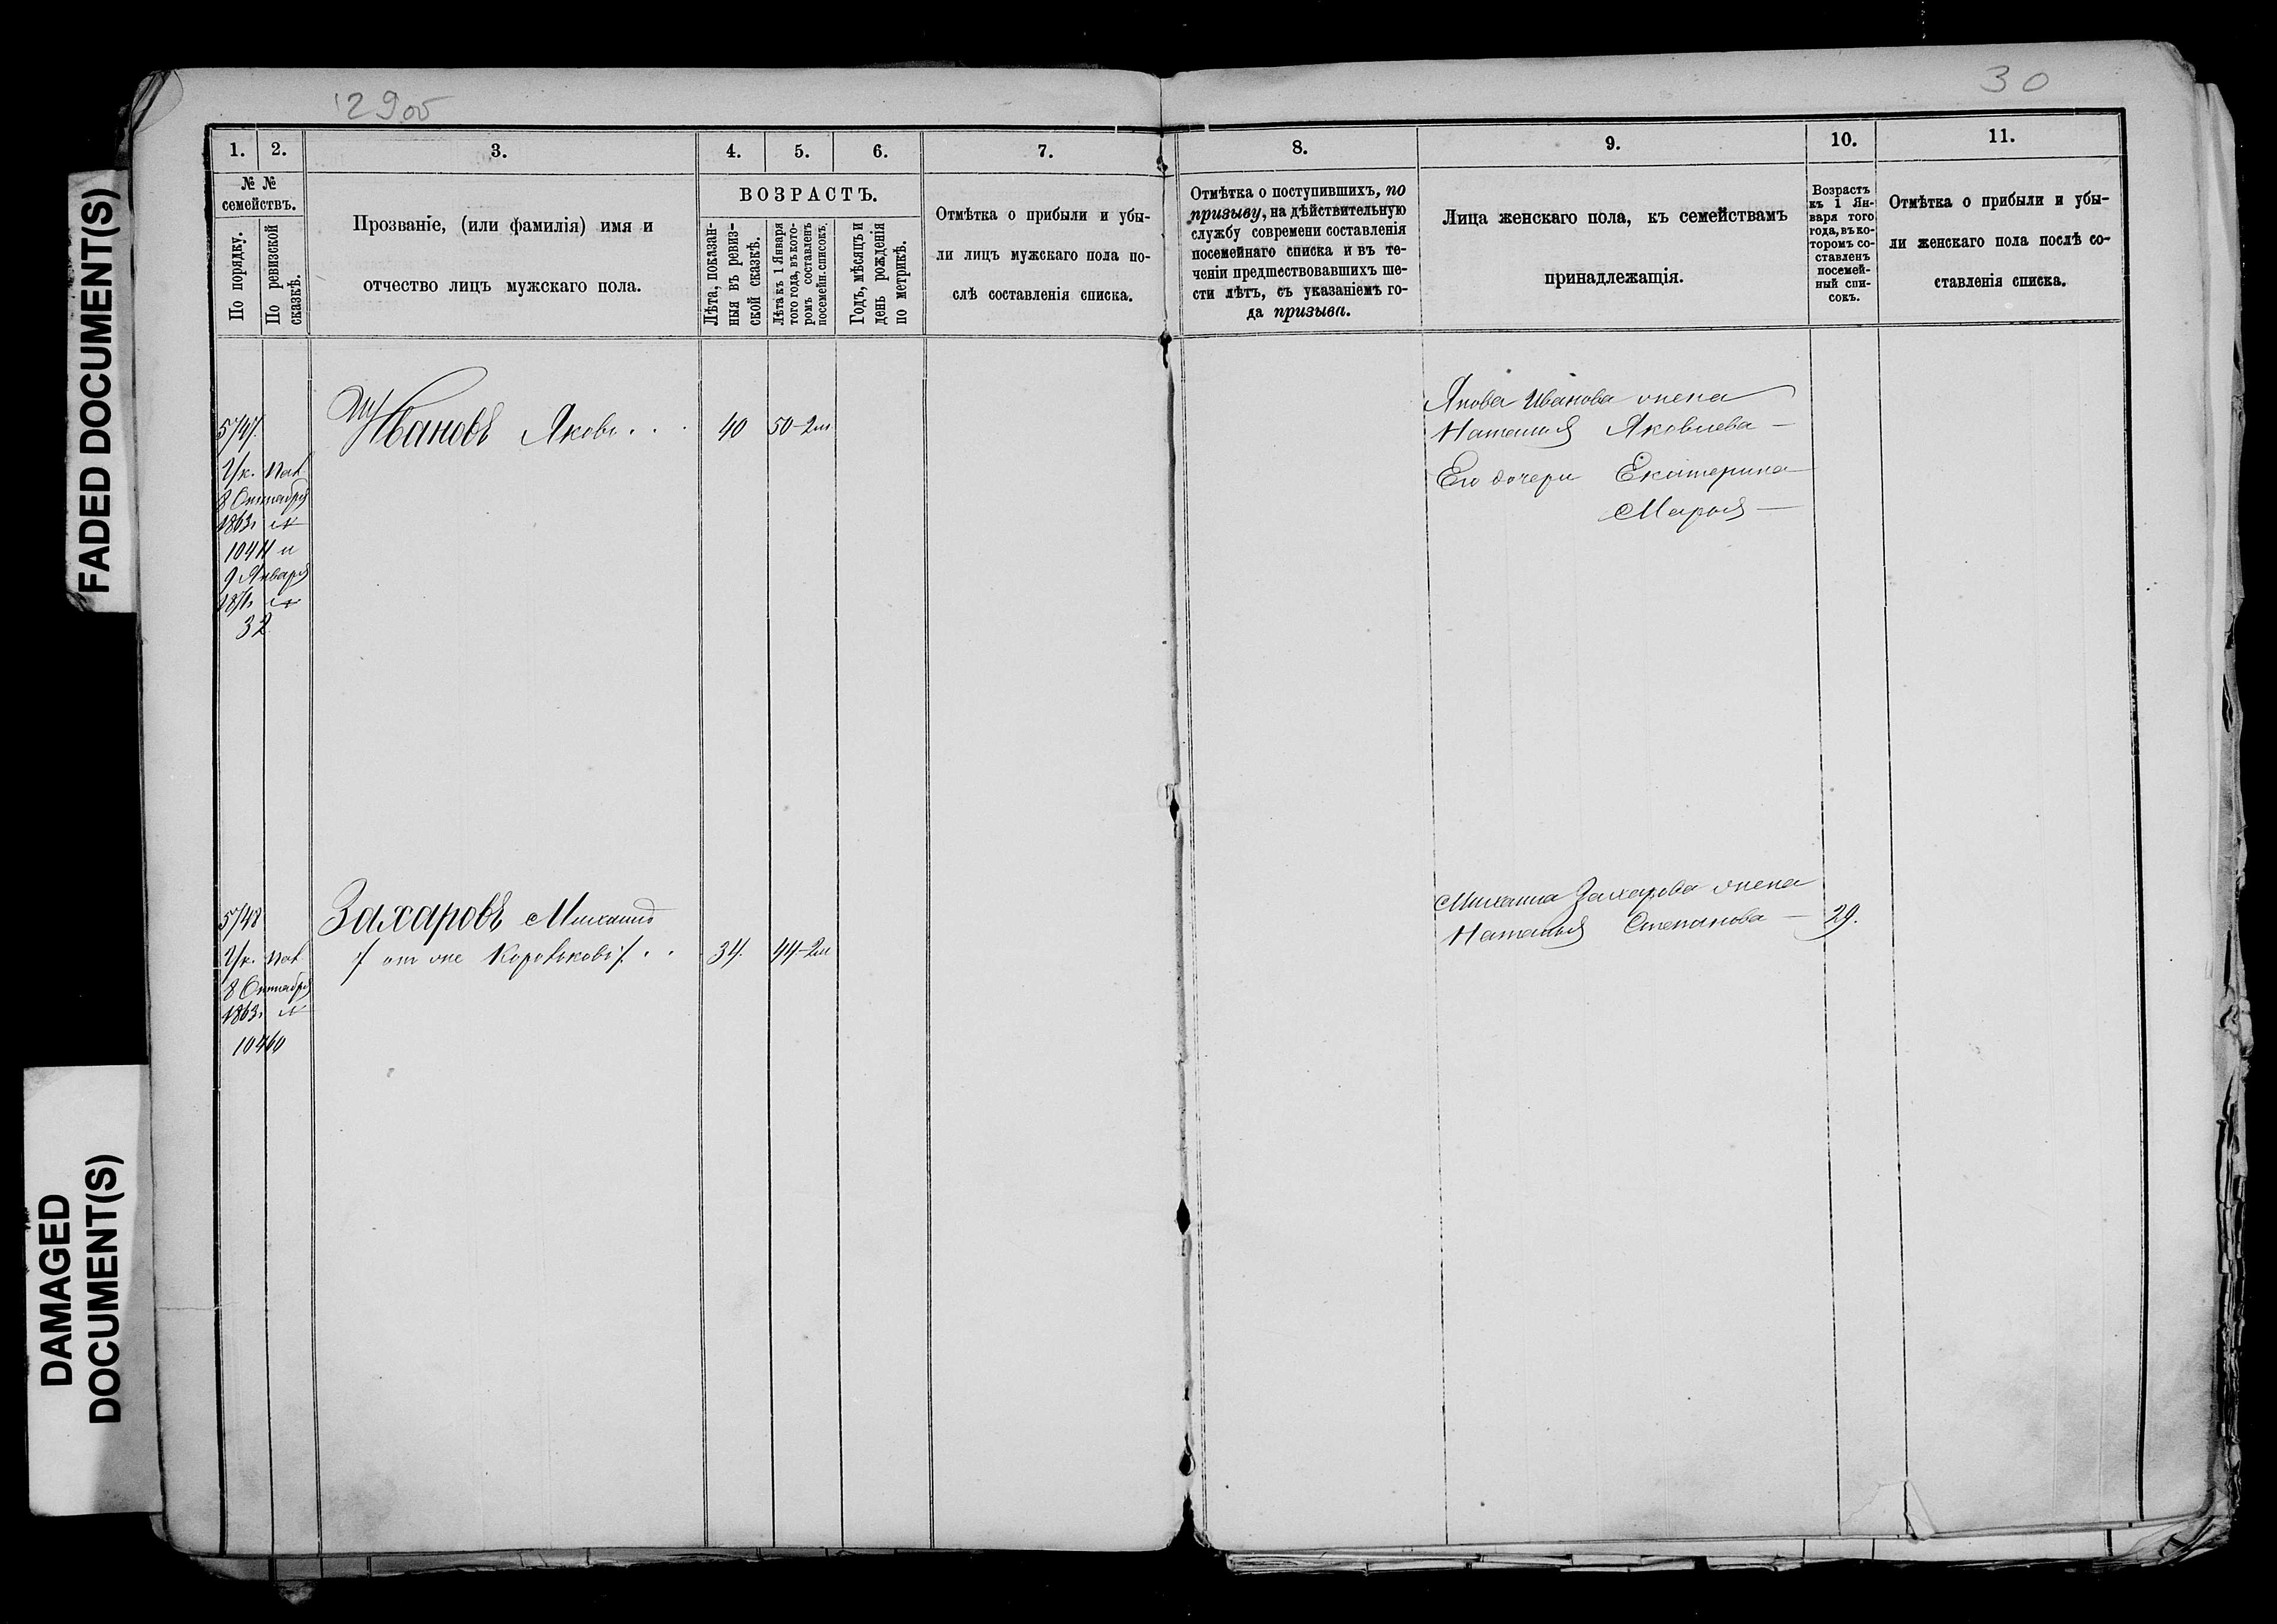 FADED DOCUMENT(S)
DAMAGED
DOCUMENT(S)
29об
30
1.
2.
3.
4.
5.
6.
7.
№ №
семействъ.
По порядку.
По ревизской
сказкѣ.
Прозваніе, (или фамилія) имя и
отчество лицъ мужскаго пола.
ВОЗРАСТЪ.
Лѣта, показан-
ныя въ ревиз-
ской сказкѣ.
Лѣта къ 1 Января
того года, въ кото-
ромъ составленъ
посемейн. списокъ.
Годъ, мѣсяцъ и
день рожденія
по метрикѣ.
Отмѣтка о прибыли и убы-
ли лицъ мужскаго пола по-
слѣ составленія списка.
5747.
Ивановъ Яковъ . . .
40
50-2м
Ук. Пал
8 Октября
1863г №
10411 и
9 Января
1871г №
32
5748
Захаровъ Михаилъ
/ он же Коровьковъ /. . .
34.
44-2м
Ук. Пал
8 Октября
1863г №
10460
8.
9.
10.
11.
Отмѣтка о поступившихъ, по
призыву, на дѣйствительную
службу современи составленія
посемейнаго списка и въ те-
ченіи предшествовавшихъ ше-
сти лѣтъ, съ указаніемъ го-
да призыва.
Лица женскаго пола, къ семействамъ
принадлежащія.
Возрастъ
къ 1 Ян-
варя того
года, въ ко-
торомъ со-
ставленъ
посемей-
ный спи-
сокъ.
Отмѣтка о прибыли и убы-
ли женскаго пола послѣ со-
ставленія списка.
Якова Иванова жена
Наталья Яковлева —
Его дочери Екатерина —
Марья —
Михаила Захарова жена
Наталья Степанова — 29.